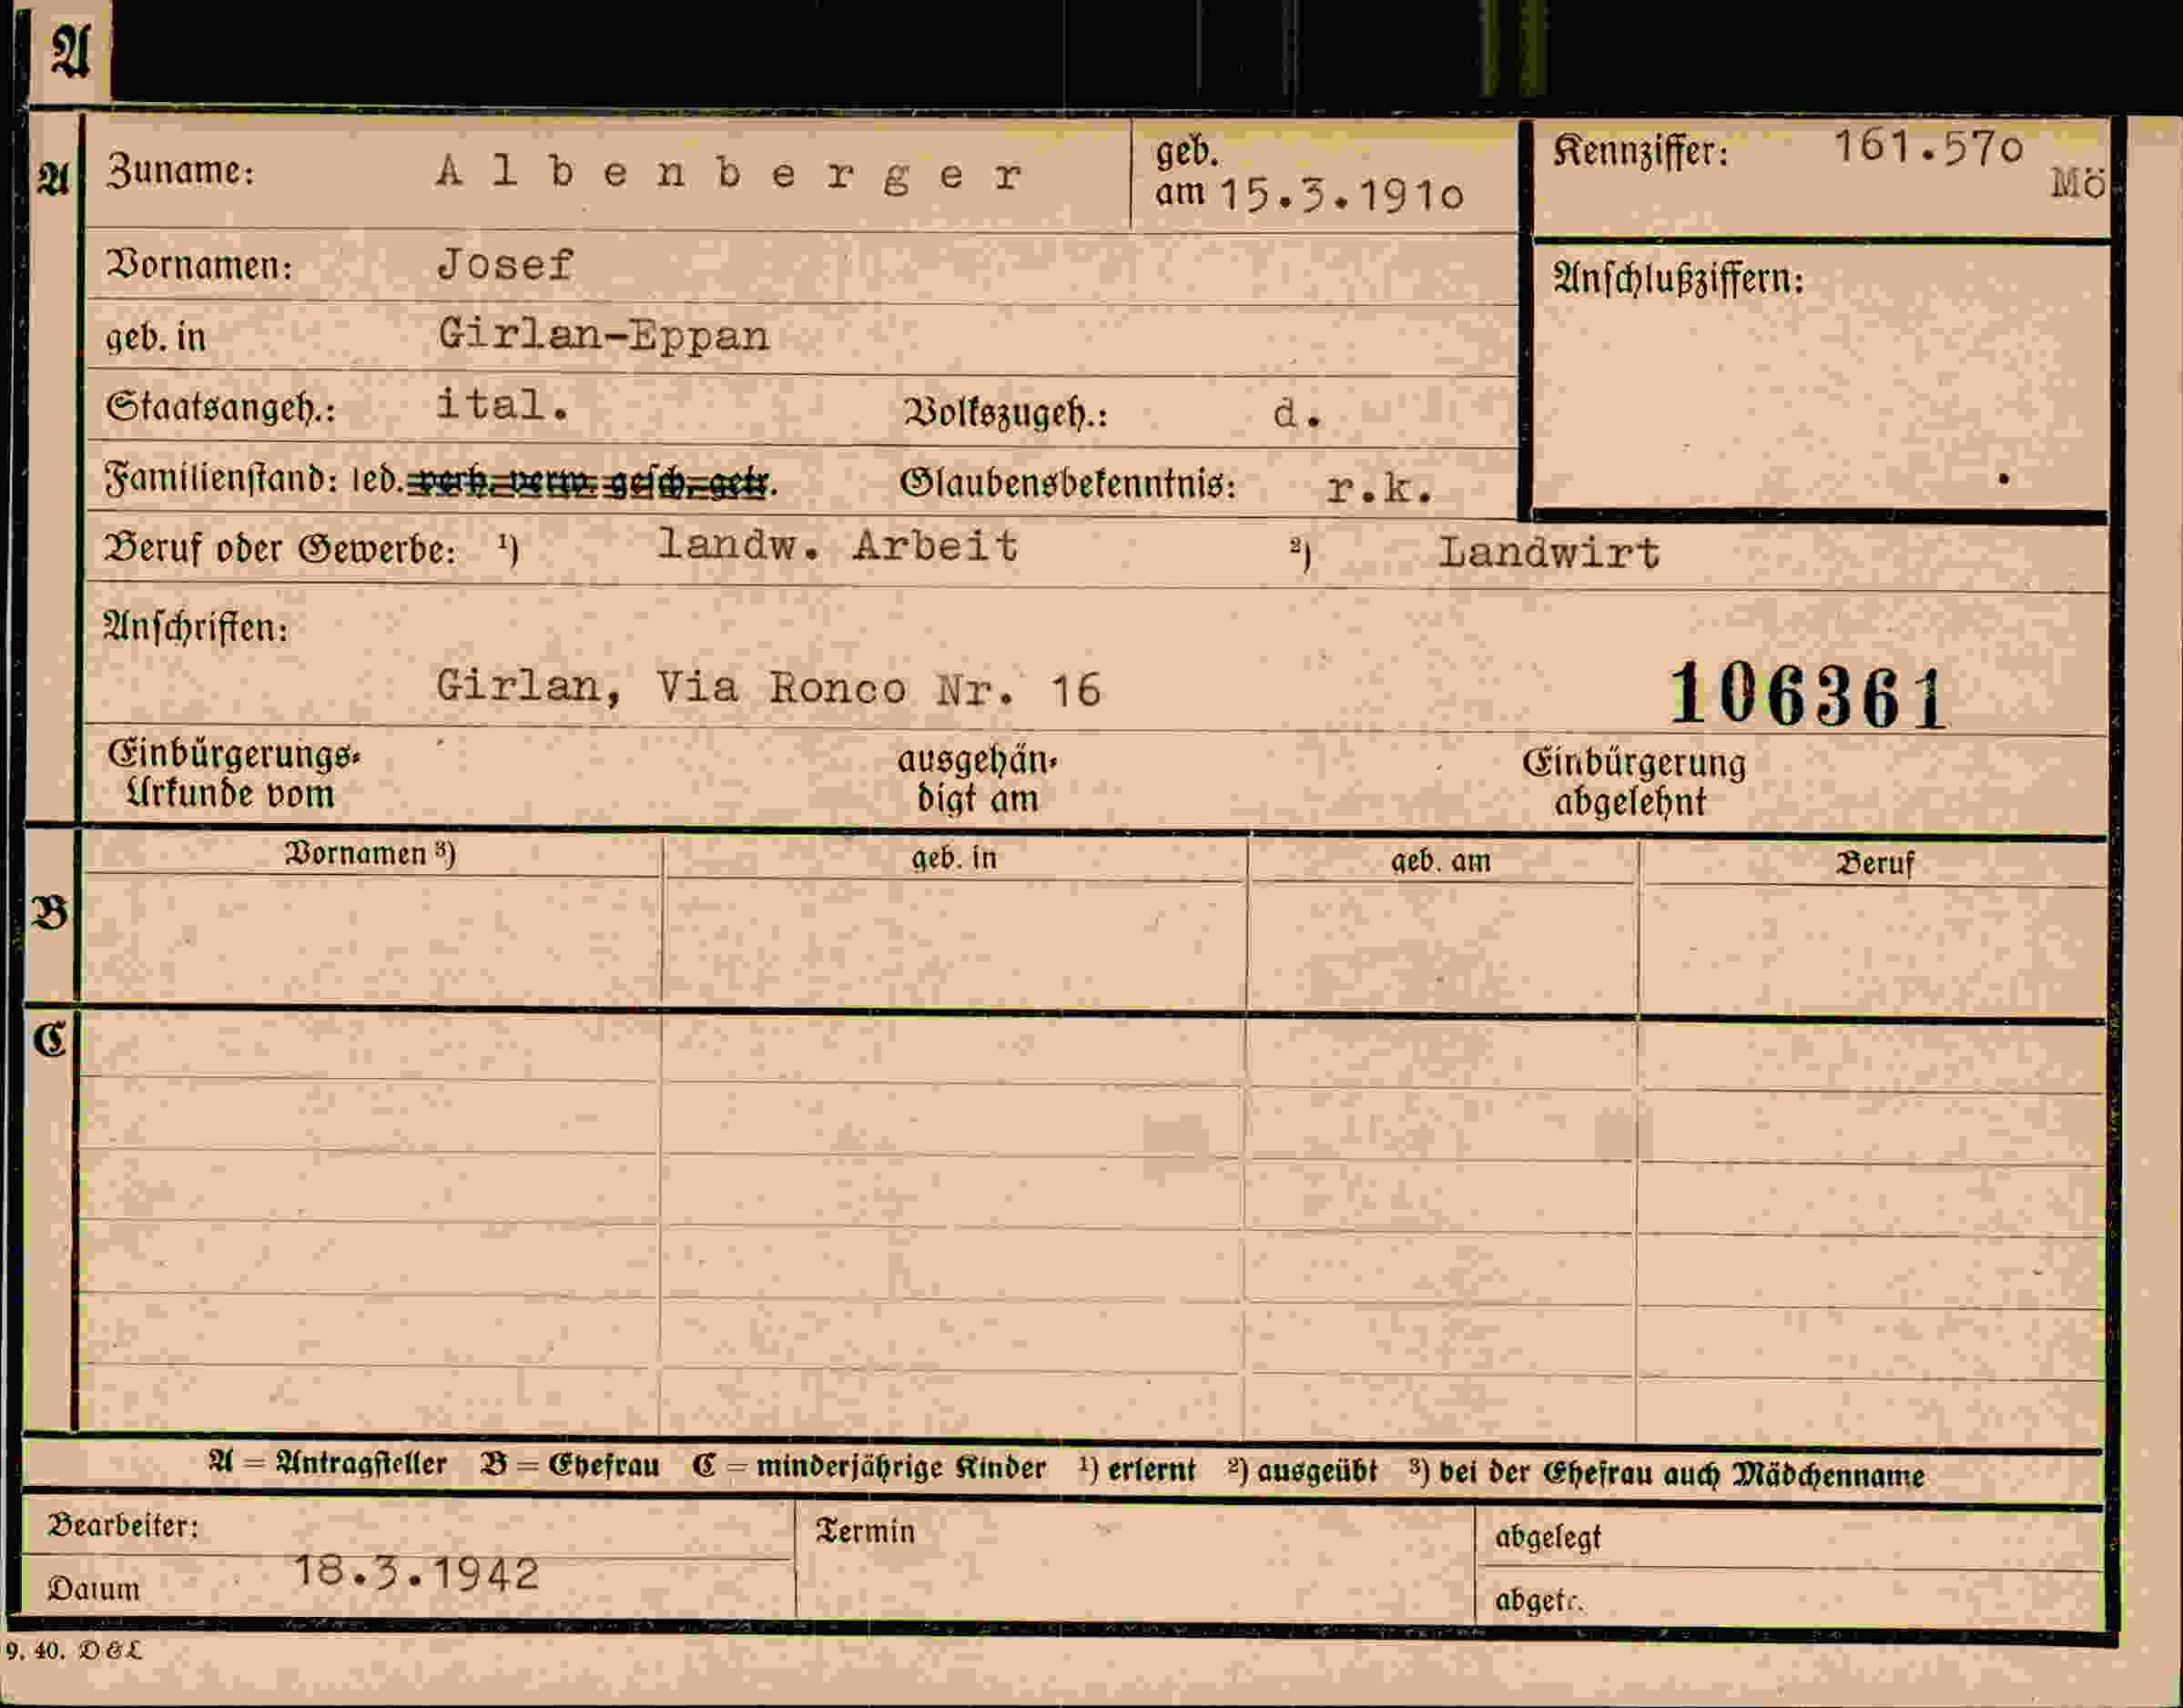 A
A Zuname: Albenberger geb. am 15.3.1910 Kennziffer: 161.570 Mö
Vornamen: Josef Anschlußziffern:
geb. in Girlan-Eppan
Staatsangeh.: ital. Volkszugeh.: d.
Familienstand: led. verh. verw. gesch. getr. Glaubensbekenntnis: r.k.
Beruf oder Gewerbe: ¹) landw. Arbeit ²) Landwirt
Anschriften:
Girlan, Via Ronco Nr. 16 106361
Einbürgerungs- ausgehän- Einbürgerung
Urkunde vom digt am abgelehnt
Vornamen ³) geb. in geb. am Beruf
B
C
A = Antragsteller B = Ehefrau C = minderjährige Kinder ¹) erlernt ²) ausgeübt ³) bei der Ehefrau auch Mädchenname
Bearbeiter: Termin abgelegt
Datum 18.3.1942 abgetr.
9. 40. D & L